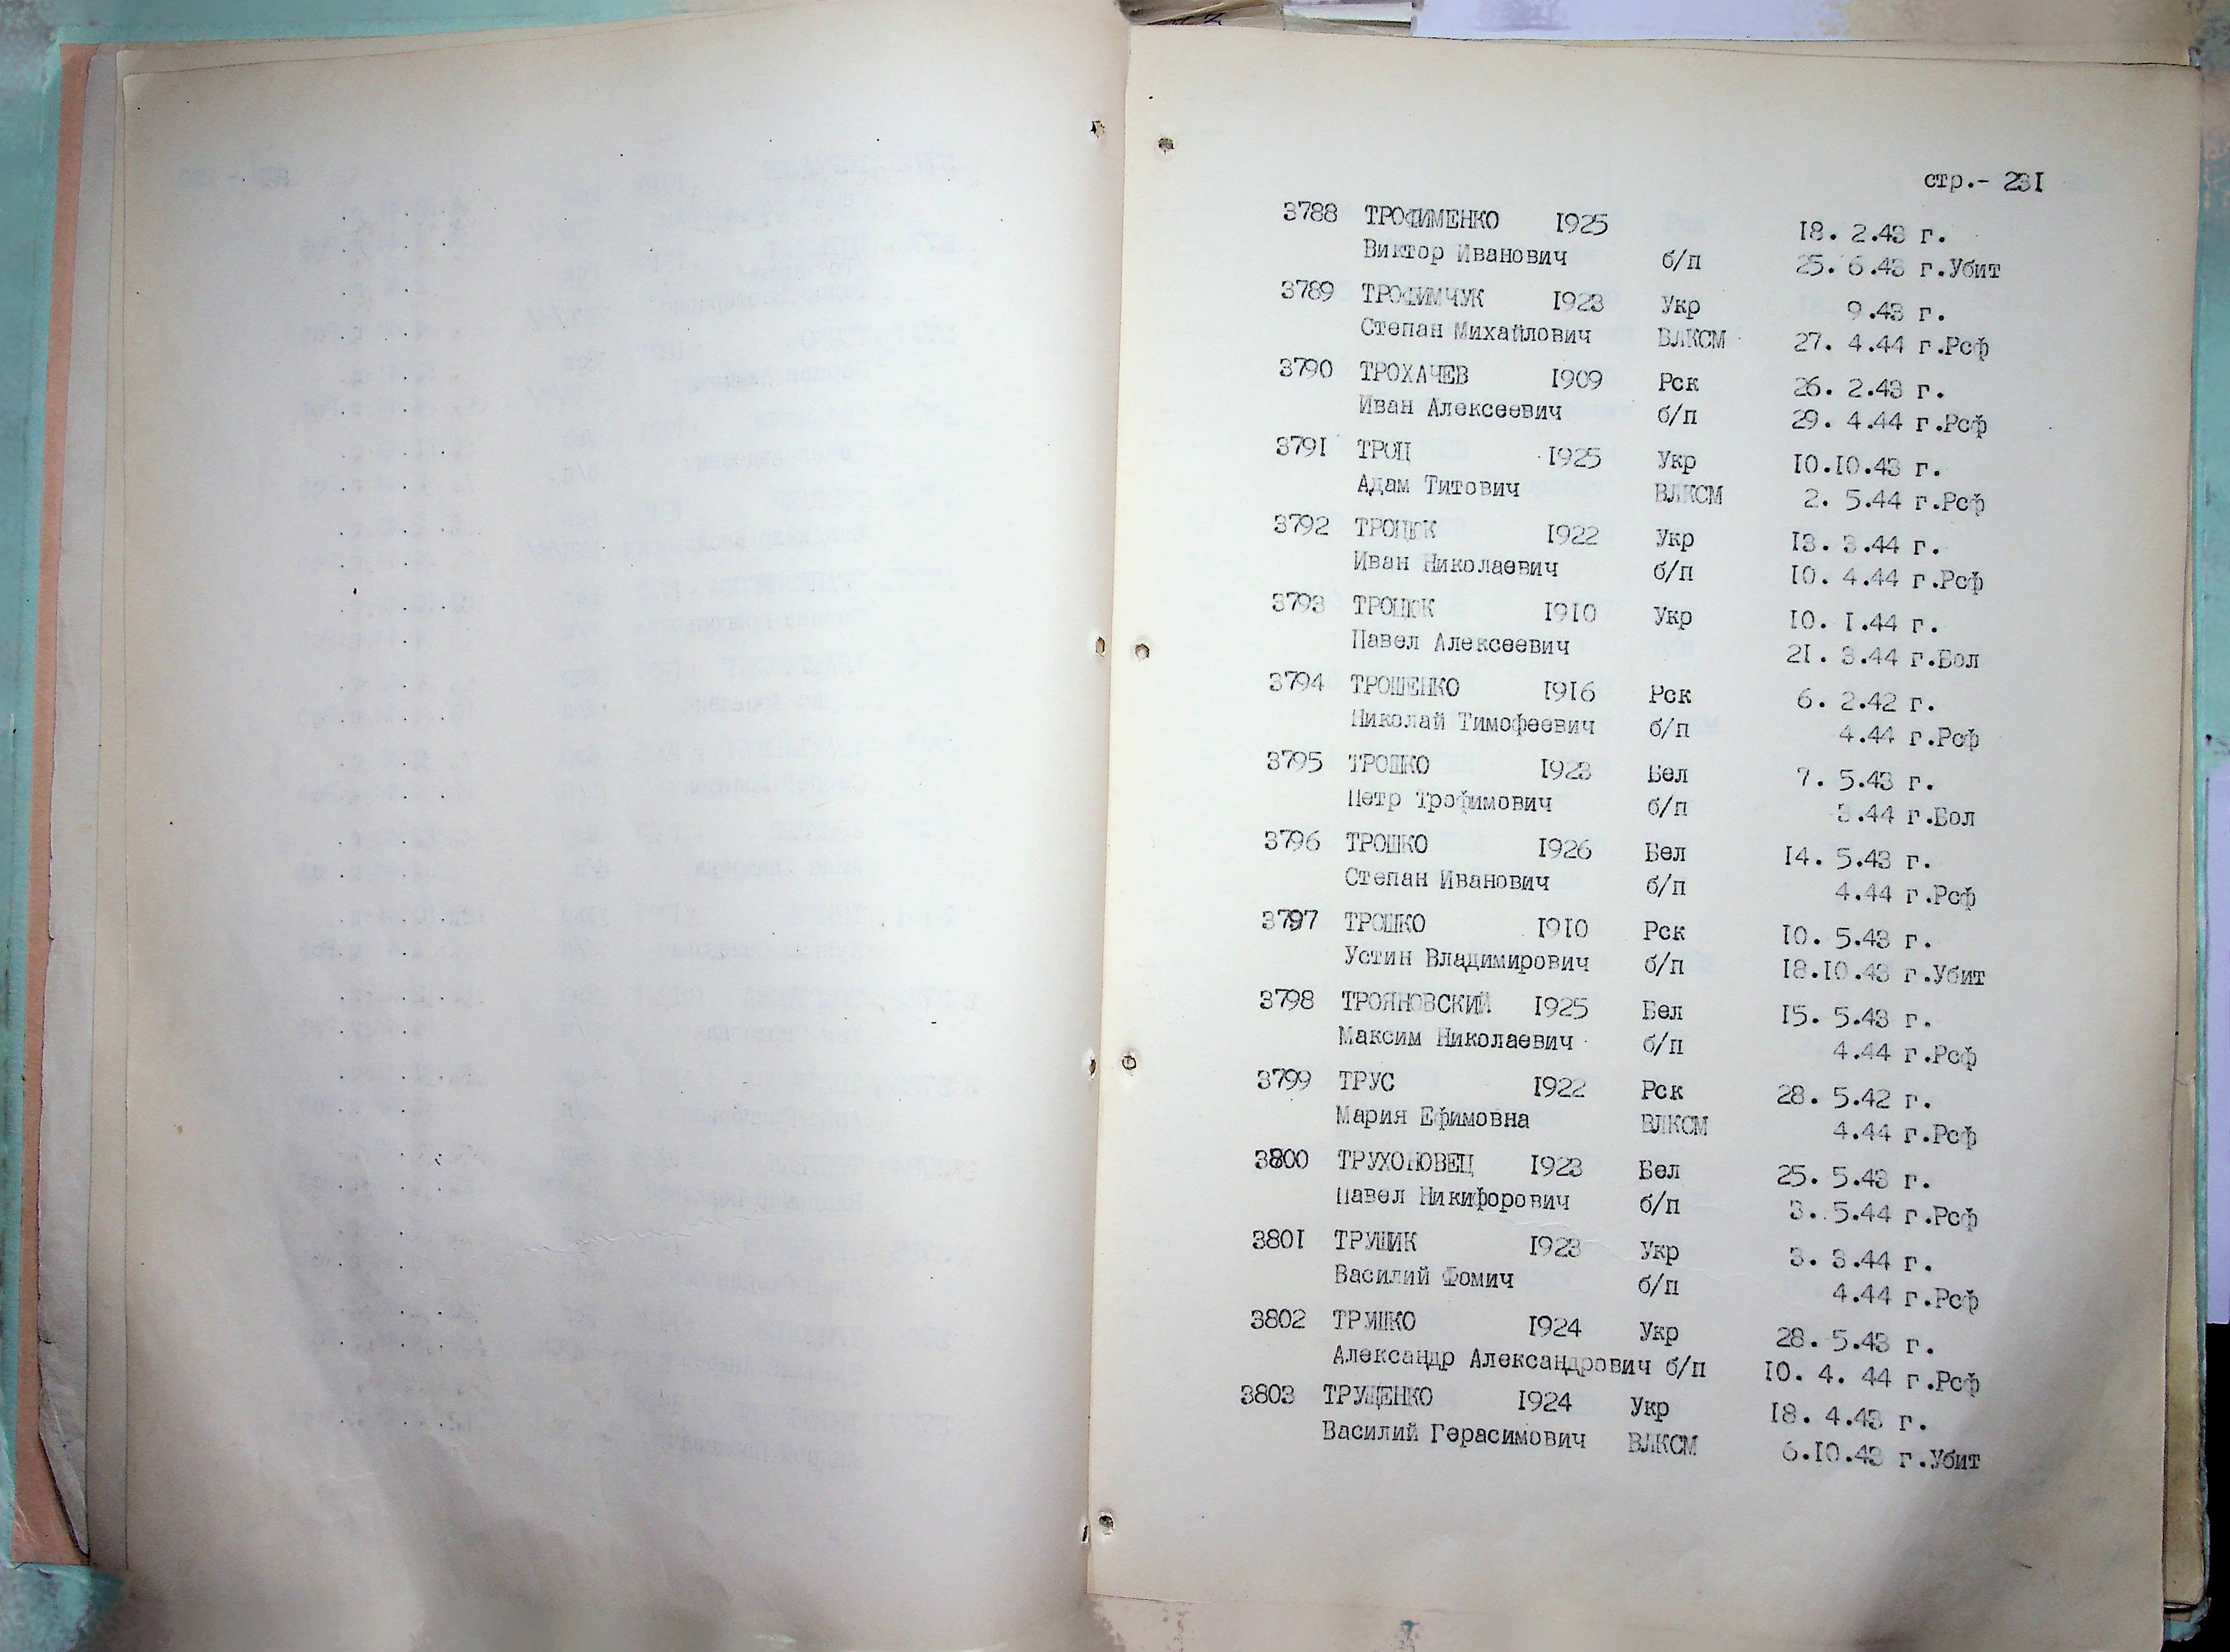 стр.- 231
3788 ТРОФИМЕНКО 1925 18. 2.43 г.
Виктор Иванович б/п 25. 6.43 г.Убит
3789 ТРОФИМЧУК 1923 Укр 9.43 г.
Степан Михайлович ВЛКСМ 27. 4.44 г.Рсф
3790 ТРОХАЧЕВ 1909 Рск 26. 2.43 г.
Иван Алексеевич б/п 29. 4.44 г.Рсф
3791 ТРОЦ 1925 Укр 10.10.43 г.
Адам Титович ВЛКСМ 2. 5.44 г.Рсф
3792 ТРОЦЮК 1922 Укр 13. 3.44 г.
Иван Николаевич б/п 10. 4.44 г.Рсф
3793 ТРОЦЮК 1910 Укр 10. 1.44 г.
Павел Алексеевич 21. 3.44 г.Бол
3794 ТРОШЕНКО 1916 Рск 6. 2.42 г.
Николай Тимофеевич б/п 4.44 г.Рсф
3795 ТРОШКО 1923 Бел 7. 5.43 г.
Петр Трофимович б/п 3.44 г.Бол
3796 ТРОШКО 1926 Бел 14. 5.43 г.
Степан Иванович б/п 4.44 г.Рсф
3797 ТРОШКО 1910 Рск 10. 5.43 г.
Устин Владимирович б/п 18.10.43 г.Убит
3798 ТРОЯНОВСКИЙ 1925 Бел 15. 5.43 г.
Максим Николаевич б/п 4.44 г.Рсф
3799 ТРУС 1922 Рск 28. 5.42 г.
Мария Ефимовна ВЛКСМ 4.44 г.Рсф
3800 ТРУХОНОВЕЦ 1923 Бел 25. 5.43 г.
Павел Никифорович б/п 3. 5.44 г.Рсф
3801 ТРУШИК 1923 Укр 3. 3.44 г.
Василий Фомич б/п 4.44 г.Рсф
3802 ТРУШКО 1924 Укр 28. 5.43 г.
Александр Александрович б/п 10. 4. 44 г.Рсф
3803 ТРУЩЕНКО 1924 Укр 18. 4.43 г.
Василий Герасимович ВЛКСМ 6.10.43 г.Убит